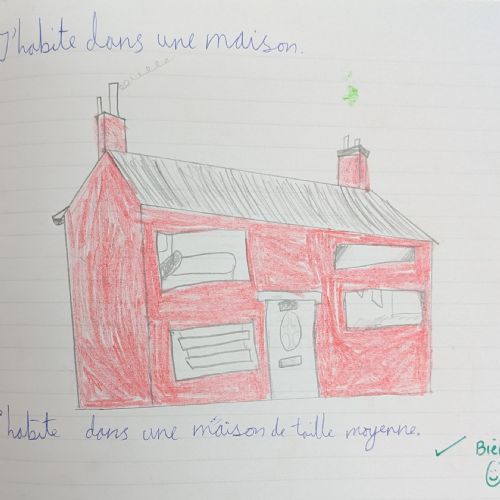 J'habite dans une maison.
J'habite dans une maison de taille moyenne.
✓ Bien